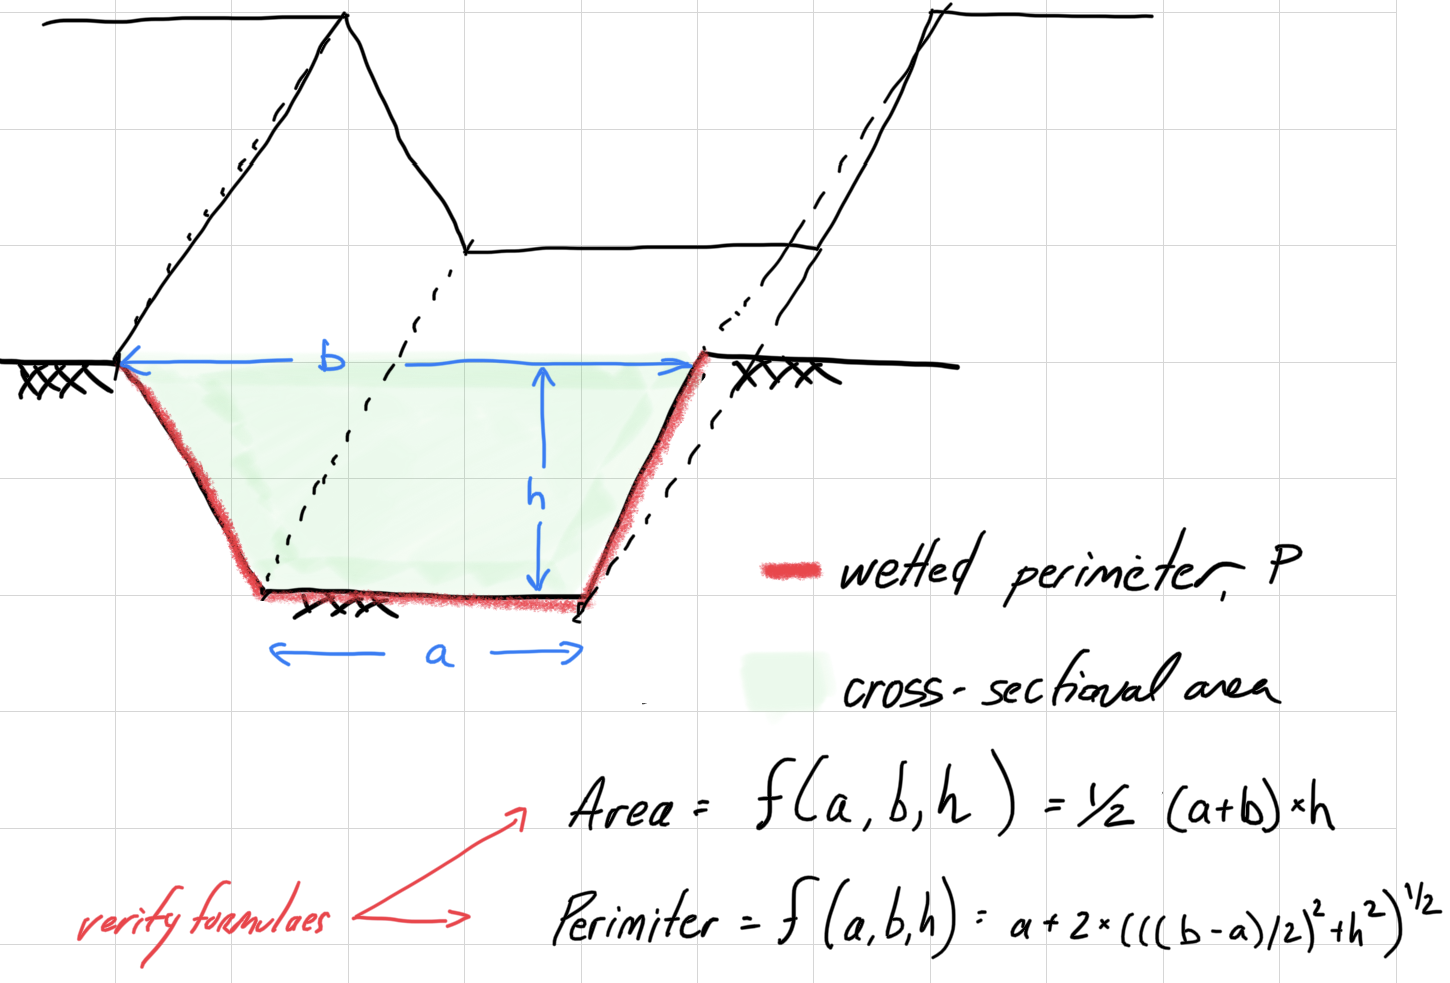 b
h
a
wetted perimeter, P
cross-sectional area
Area = f(a, b, h) = 1/2 (a+b)×h
verify formulaes
Perimiter = f(a,b,h) = a + 2×(((b-a)/2)²+h²)^1/2